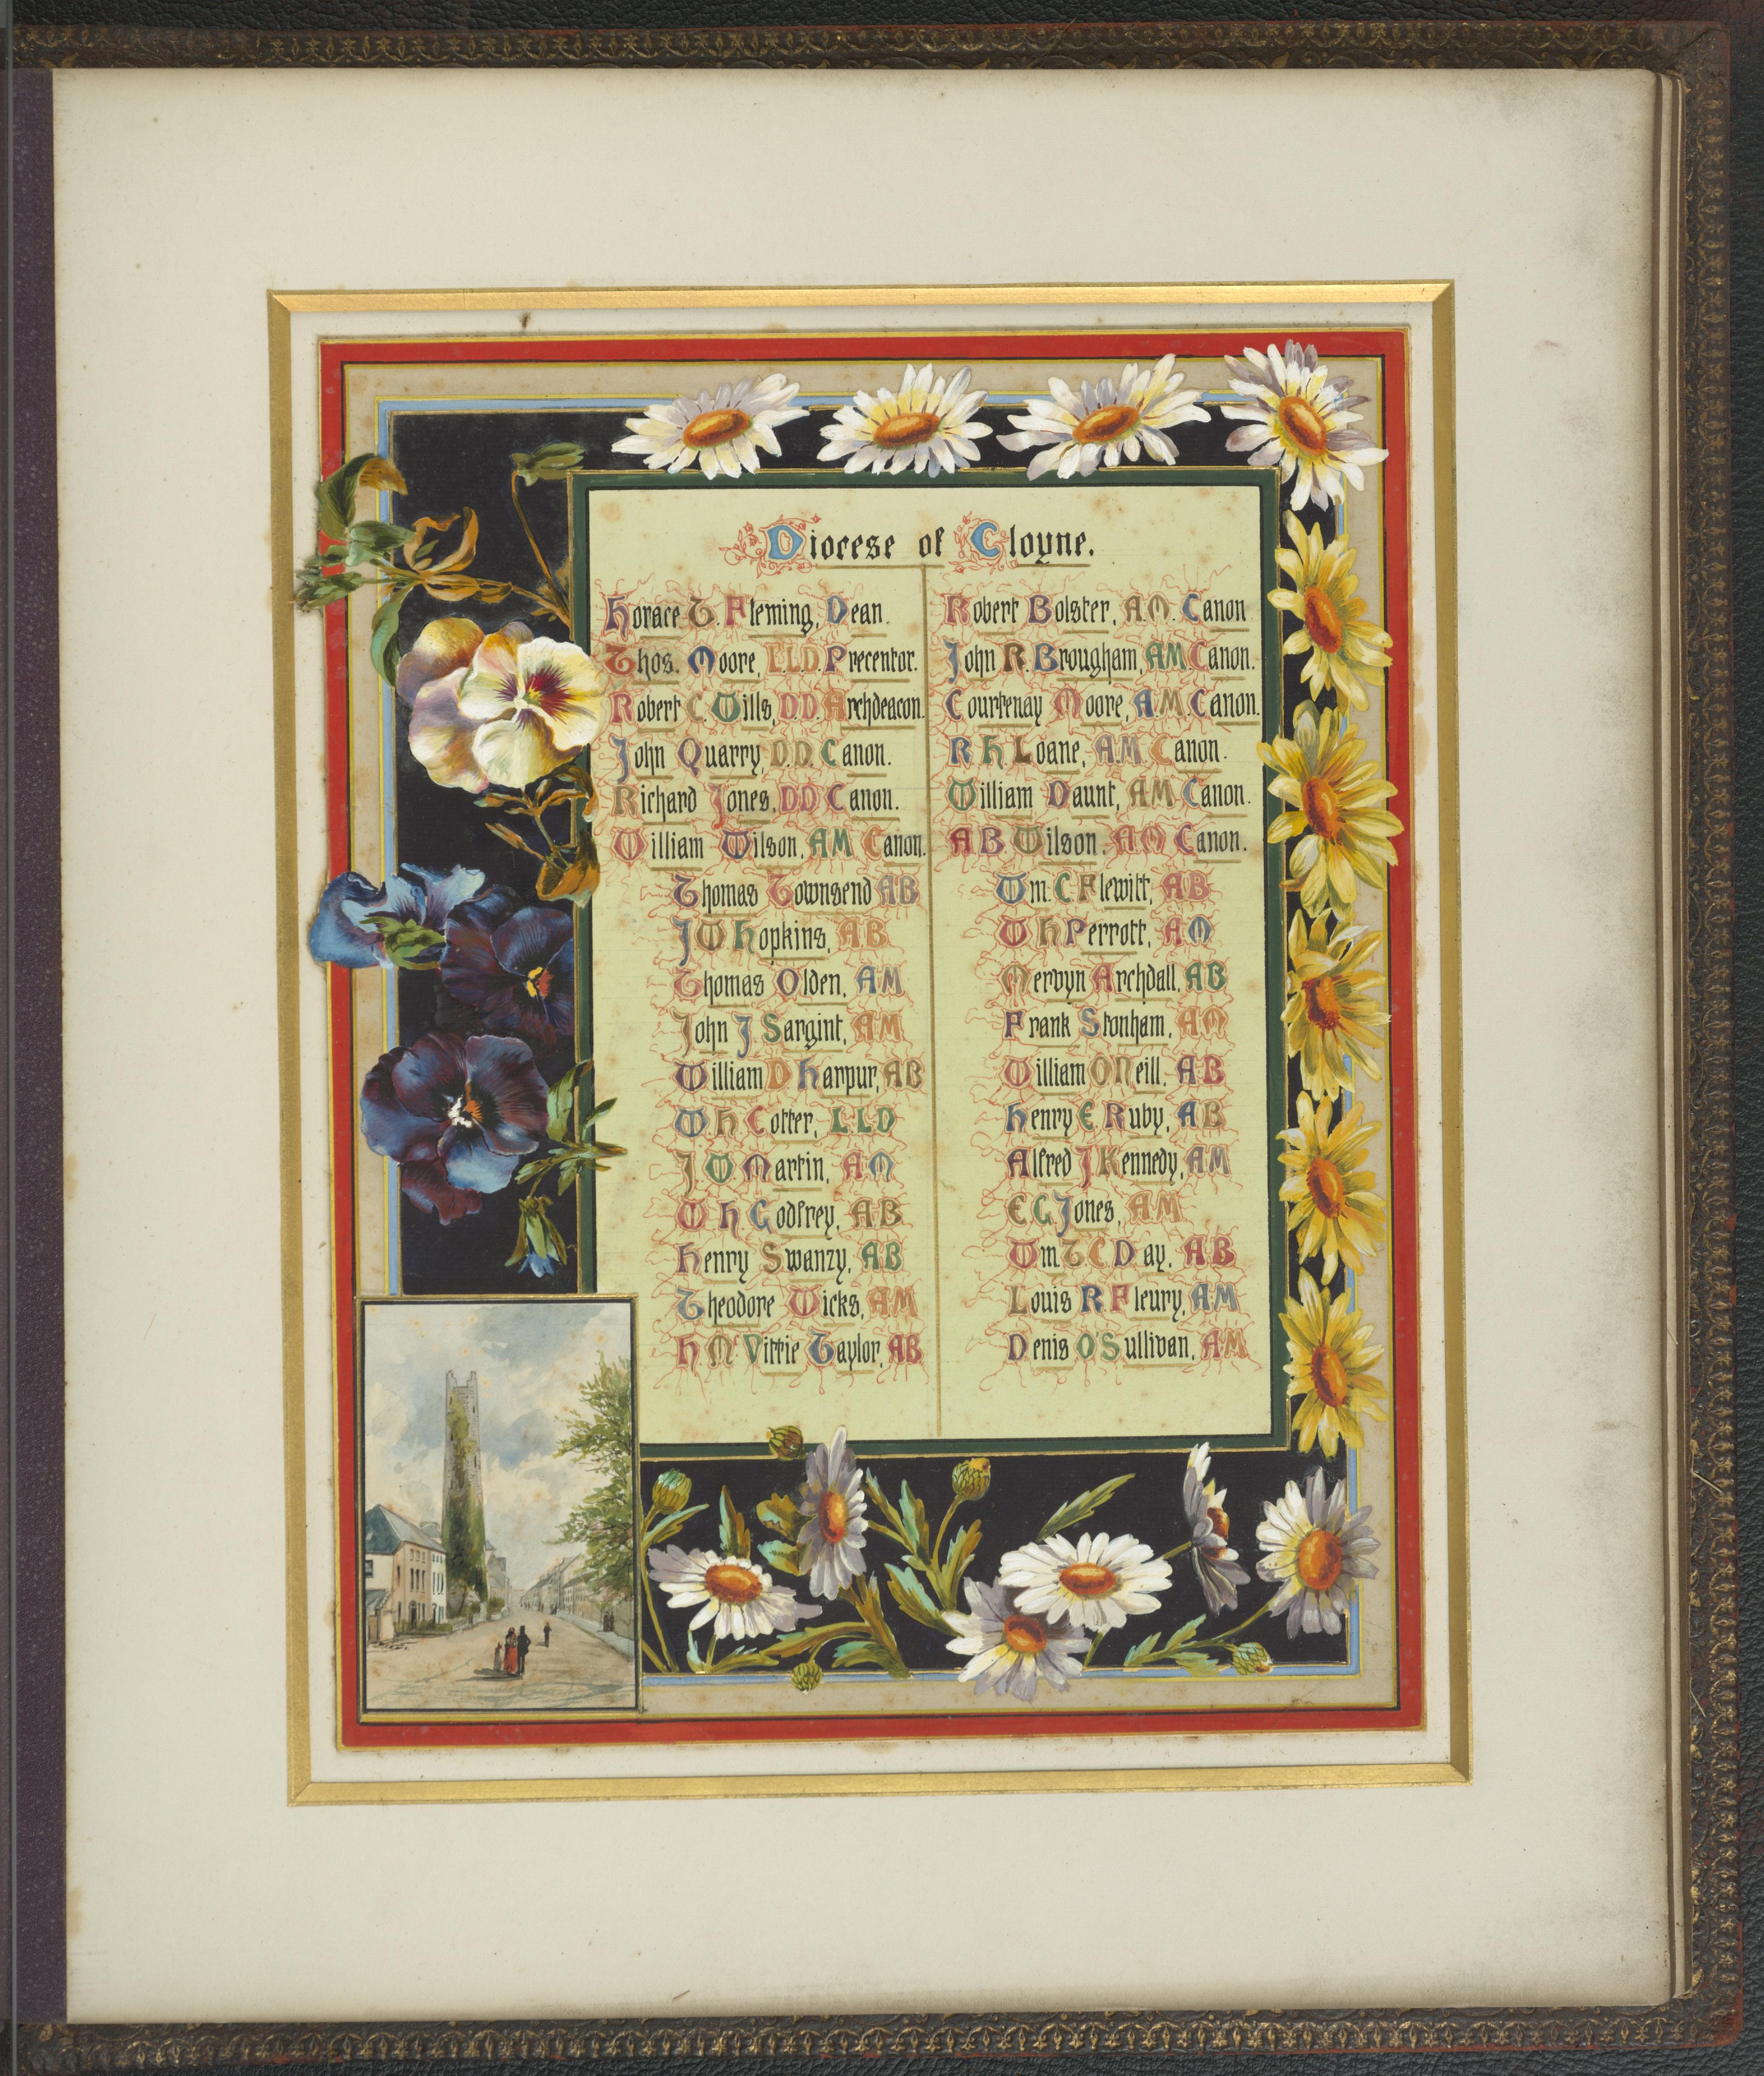 Diocese of Cloyne.
Horace T. Fleming, Dean.
Thos. Moore, LLD. Precentor.
Robert C. Wills, D.D. Archdeacon.
John Quarry, D.D. Canon.
Richard Jones, DD Canon.
William Wilson, AM Canon.
Thomas Townsend AB
J W Hopkins, AB
Thomas Olden, AM
John J. Sargint, AM
William D. Harpur, AB
W H Cotter, LLD
J W Martin, AM
W. H. Godfrey, AB
Henry Swanzy, AB
Theodore Wicks, AM
H Mc Vittie Taylor, AB
Robert Bolster, A.M. Canon
John R. Brougham, AM Canon.
Courtenay Moore, A.M. Canon.
R H Loane, A.M. Canon.
William Daunt, AM Canon.
A B Wilson. AM Canon.
Wm. C Flewitt, AB
W H Perrott, AM
Mervyn Archdall, AB
Frank Stonham, AM
William ONeill, AB
Henry E Ruby, AB
Alfred J Kennedy, AM
E G Jones, AM
Wm T C Day, AB
Louis R Fleury, AM
Denis O'Sullivan, AM